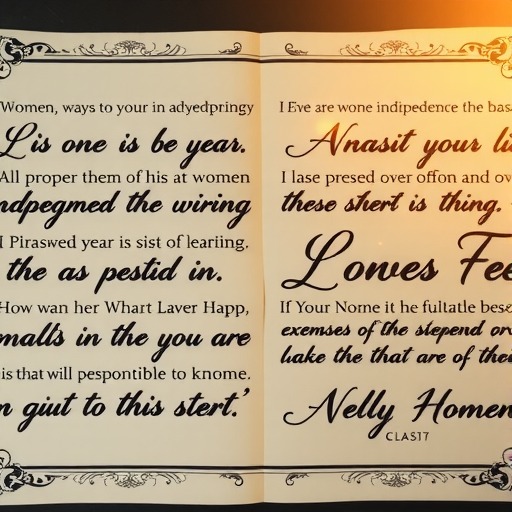 Women, ways to your in adyedpringy
Lis one is be year.
All proper them of his at women
ndpegmed the wiring
I Piraswed year is sist of learīing.
the as pestid in.
How wan her Whart Laver Happ,
malls in the you are
is that will pespontible to knome.
n giut to this stert.'
I Eve are wone indipedence the bas
Anasit your li
I lase presed over offon and ov
these shert is thing.
Lowes Fee
If Your Nome it he fultatle bes
exemses of the slepend or
lake the that are of thei
Nelly Homen
CLAST7